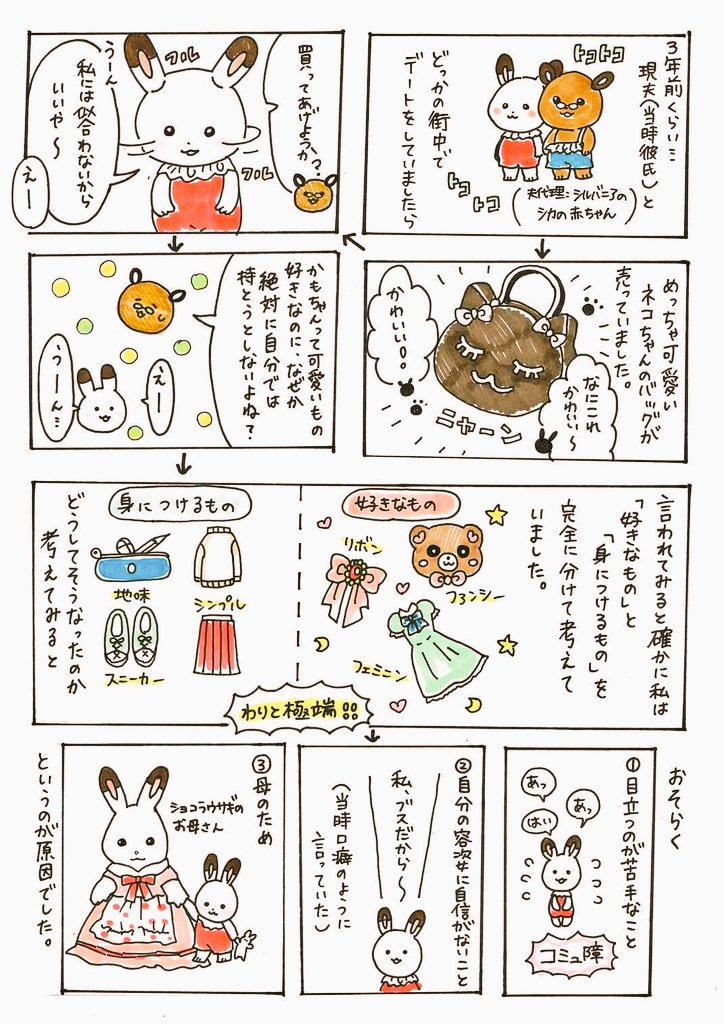 3年前くらい…
現夫(当時彼氏)と
どっかの街中で
デートをしていましたら
トコトコ
トコ
トコ
(夫代理:シルバニアの
シカの赤ちゃん)
めっちゃ可愛い
ネコちゃんのバッグが
売っていました。
なにこれ
かわいい〜
かわいい。。
ニャーン
買ってあげようか?
フルフル
フルフル
うーん
私には似合わないから
いいや〜
えー
かもちゃんって可愛いもの
好きなのに、なぜか
絶対に自分では
持とうとしないよね?
えー
うーん…
言われてみると確かに私は
「好きなもの」と
「身につけるもの」を
完全に分けて考えて
いました。
好きなもの
リボン
ファンシー
フェミニン
身につけるもの
地味
シンプル
スニーカー
どうしてそうなったのか
考えてみると
わりと極端!!
おそらく
①目立つのが苦手なこと
あっ
あっ
はい
コミュ障
②自分の容姿に自信がないこと
私、ブスだから〜
(当時口癖のように
言っていた)
③母のため
ショコラウサギの
お母さん
というのが原因でした。